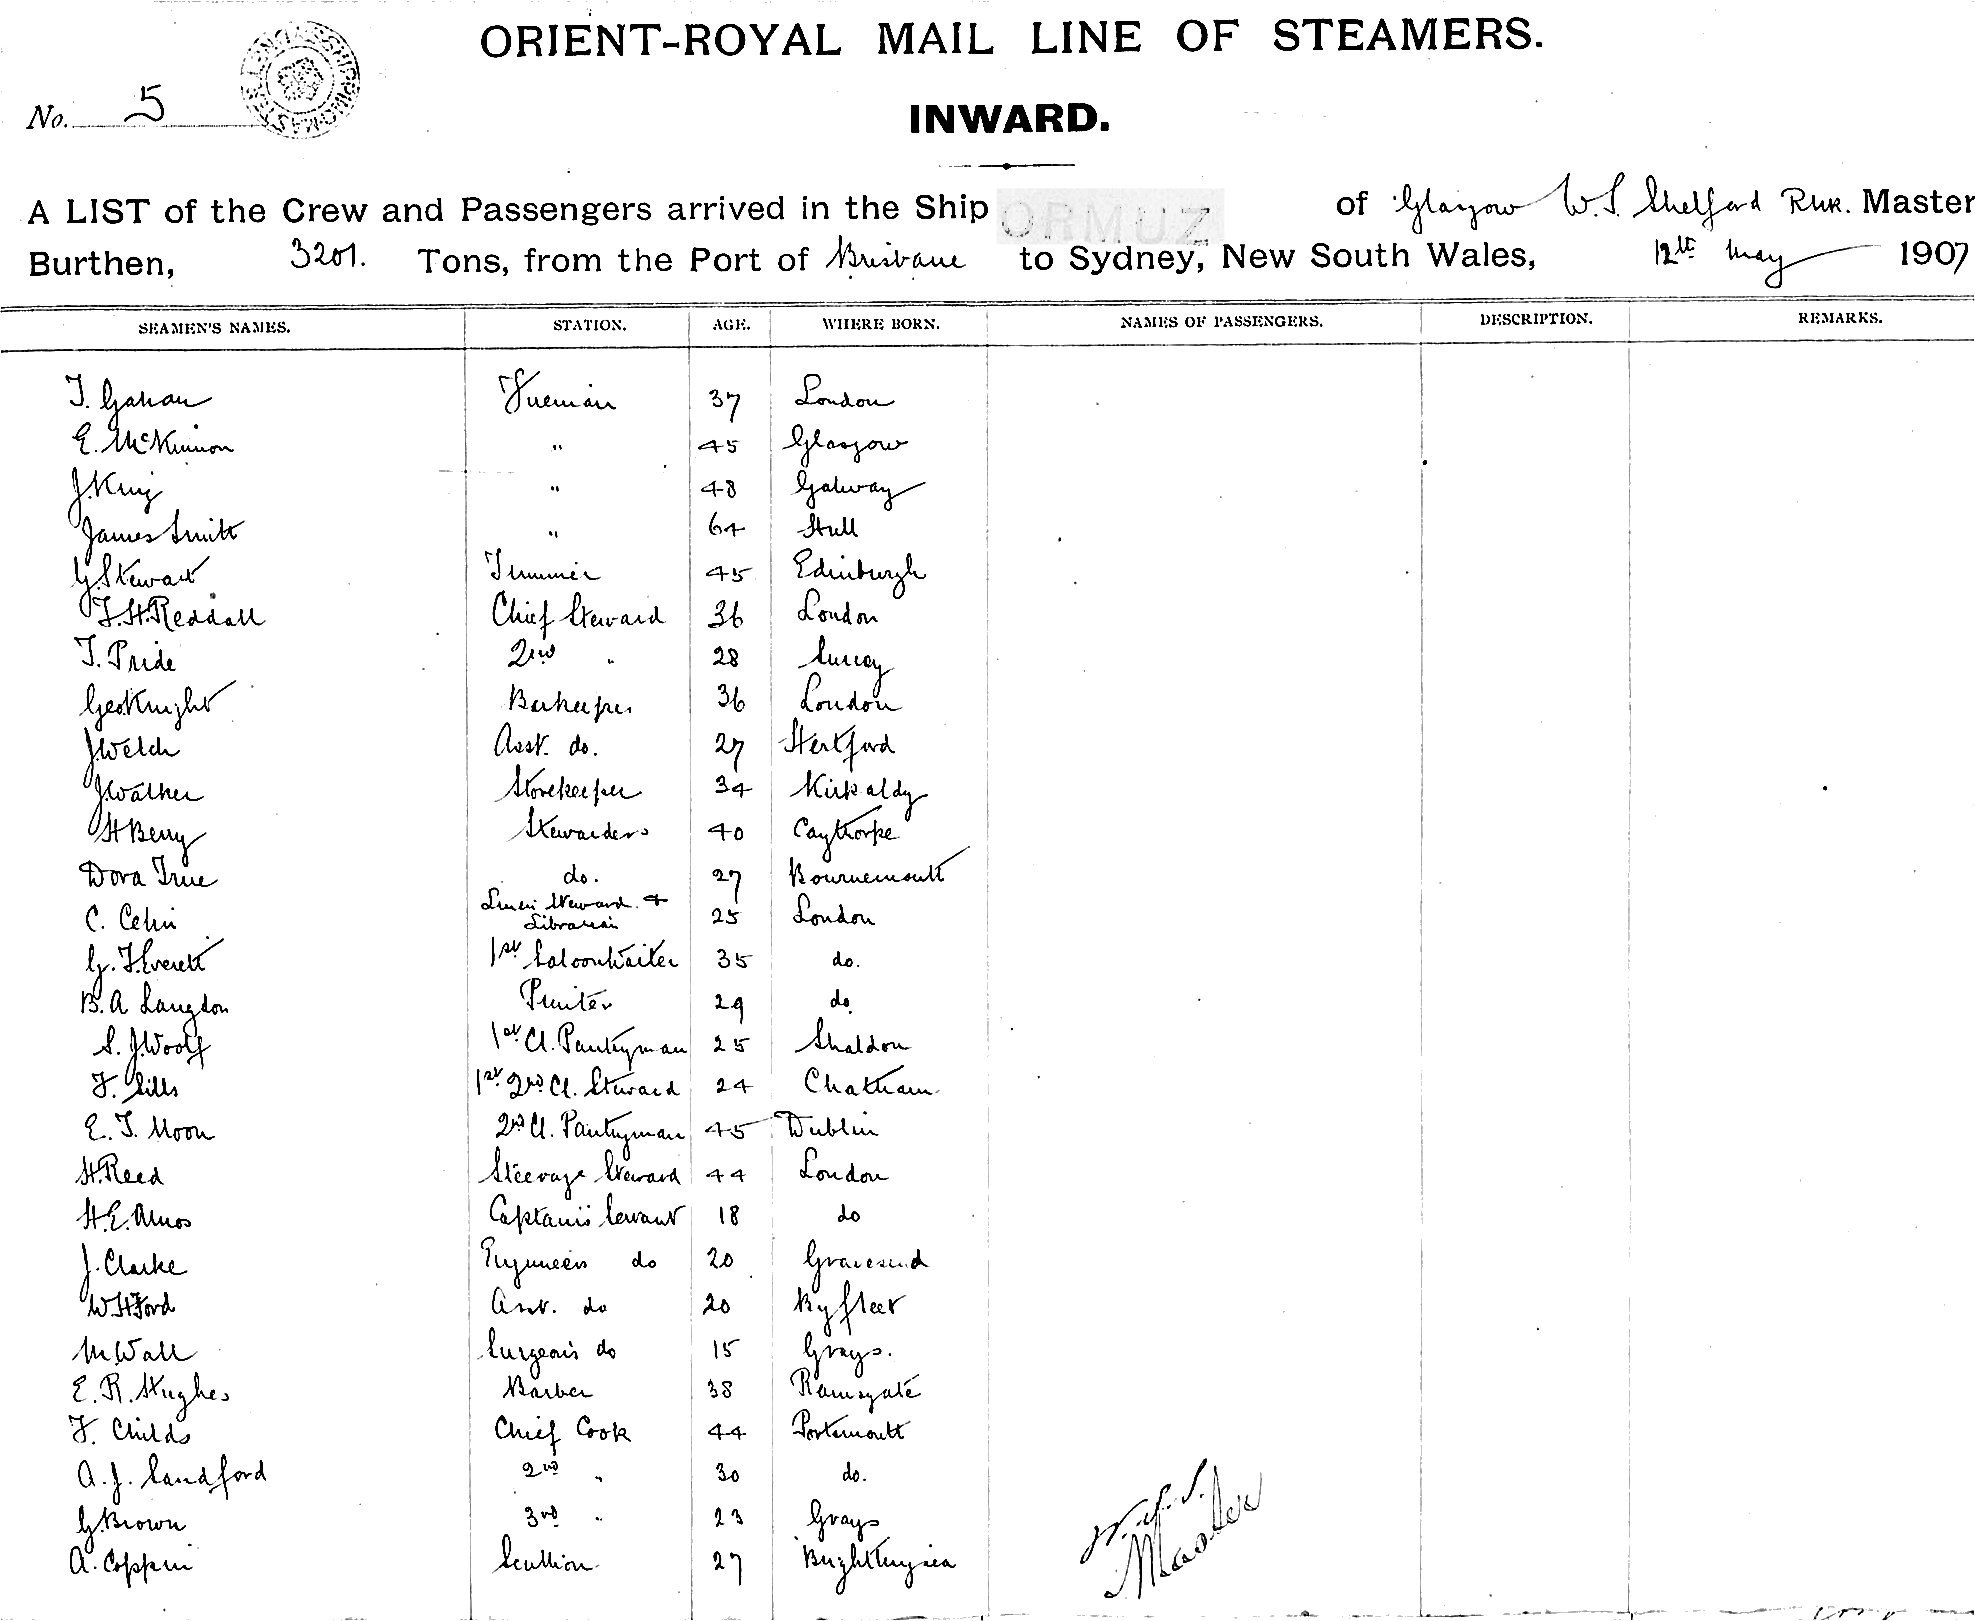 ORIENT-ROYAL MAIL LINE OF STEAMERS.
No. 5
INWARD.
A LIST of the Crew and Passengers arrived in the Ship ORMUZ of Glasgow W. S. Shelford RNR. Master
Burthen, 3201. Tons, from the Port of Brisbane to Sydney, New South Wales, 12th May 1907
SEAMEN'S NAMES. STATION. AGE. WHERE BORN. NAMES OF PASSENGERS. DESCRIPTION. REMARKS.
T. Gahan Fireman 37 London
E. McKinnon " 45 Glasgow
J. King " 48 Galway
James Smith " 64 Hull
G. Stewart Trimmer 45 Edinburgh
F. H. Reddall Chief Steward 36 London
T. Pride 2nd " 28 Surrey
Geo Knight Barkeeper 36 London
J. Welch Asst. do. 27 Hertford
J. Walker Storekeeper 34 Kirkaldy
H Berry Stewardess 40 Caythorpe
Dora True do. 27 Bournemouth
C. Linen Steward & Librarian 25 London
G. F. Everett 1st Saloon Waiter 35 do.
B. A Langdon Printer 29 do
S. J. Woolf 1st Cl. Pantryman 25 Shaldon
F. Sills 1st 2nd Cl. Steward 24 Chatham
E. T. Moon 2nd Cl. Pantryman 45 Dublin
H. Reed Steerage Steward 44 London
H. E. Amos Captain's Servant 18 do
J. Clarke Engineers do 20 Gravesend
W H Ford Asst. do 20 Byfleet
M. Wall Surgeons do 15 Grays.
E. R. Hughes Barber 38 Ramsgate
F. Childs Chief Cook 44 Portsmouth
A. J. Sandford 2nd " 30 do.
G. Brown 3rd " 23 Grays
A. Coppin Scullion 27 Brightlingsea
W. S. S.
Master